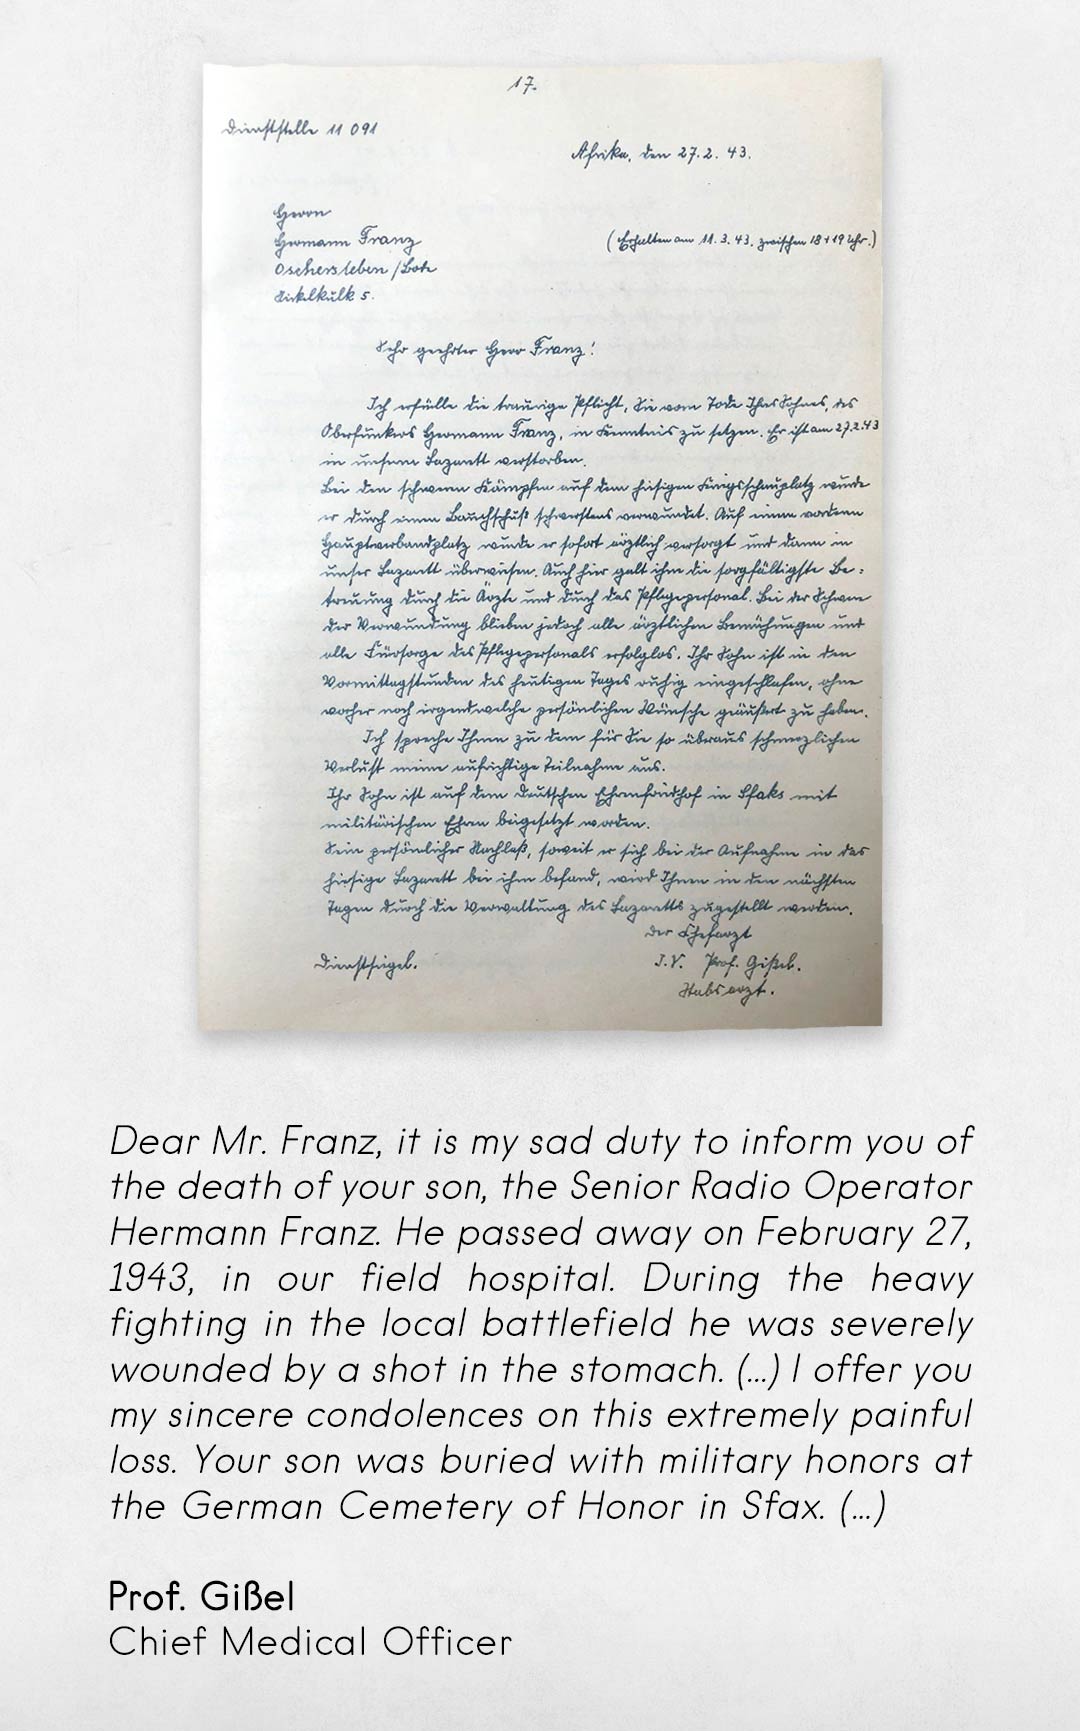 17.
Dienststelle 11 091
Afrika, den 27.2. 43.
Herrn
Hermann Franz
(Erhalten am 11.3.43. zwischen 18+19 Uhr.)
Oschersleben /Bode
5.
Sehr geehrter Herr Franz!
Ich erfülle die traurige Pflicht, Sie vom Tode Ihres Sohnes, des
Oberfunkers Hermann Franz, in Kenntnis zu setzen. Er ist am 27.2.43
in unserem Lazarett verstorben.
Bei den schweren Kämpfen auf dem hiesigen Kriegsschauplatz wurde
er durch einen Bauchschuß schwerstens verwundet. Auf einem vorderen
Hauptverbandplatz wurde er sofort ärztlich versorgt und dann in
unser Lazarett überwiesen. Auch hier galt ihm die sorgfältigste Be-
treuung durch die Ärzte und durch das Pflegepersonal. Bei der Schwere
der Verwundung blieben jedoch alle ärztlichen Bemühungen und
alle Fürsorge des Pflegepersonals erfolglos. Ihr Sohn ist in den
Vormittagstunden des heutigen Tages ruhig eingeschlafen, ohne
vorher noch irgendwelche persönlichen Wünsche geäußert zu haben.
Ich spreche Ihnen zu dem für Sie so überaus schmerzlichen
Verlust meine aufrichtige Teilnahme aus.
Ihr Sohn ist auf dem Deutschen Ehrenfriedhof in Sfaks mit
militärischen Ehren beigesetzt worden.
Sein persönlicher Nachlaß, soweit er sich bei der Aufnahme in das
hiesige Lazarett bei ihm befand, wird Ihnen in den nächsten
Tagen durch die Verwaltung des Lazaretts zugestellt werden.
Der Chefarzt
Dienstsiegel.
I.V. Prof. Gißel.
Stabsarzt.
Dear Mr. Franz, it is my sad duty to inform you of
the death of your son, the Senior Radio Operator
Hermann Franz. He passed away on February 27,
1943, in our field hospital. During the heavy
fighting in the local battlefield he was severely
wounded by a shot in the stomach. (...) I offer you
my sincere condolences on this extremely painful
loss. Your son was buried with military honors at
the German Cemetery of Honor in Sfax. (...)
Prof. Gißel
Chief Medical Officer